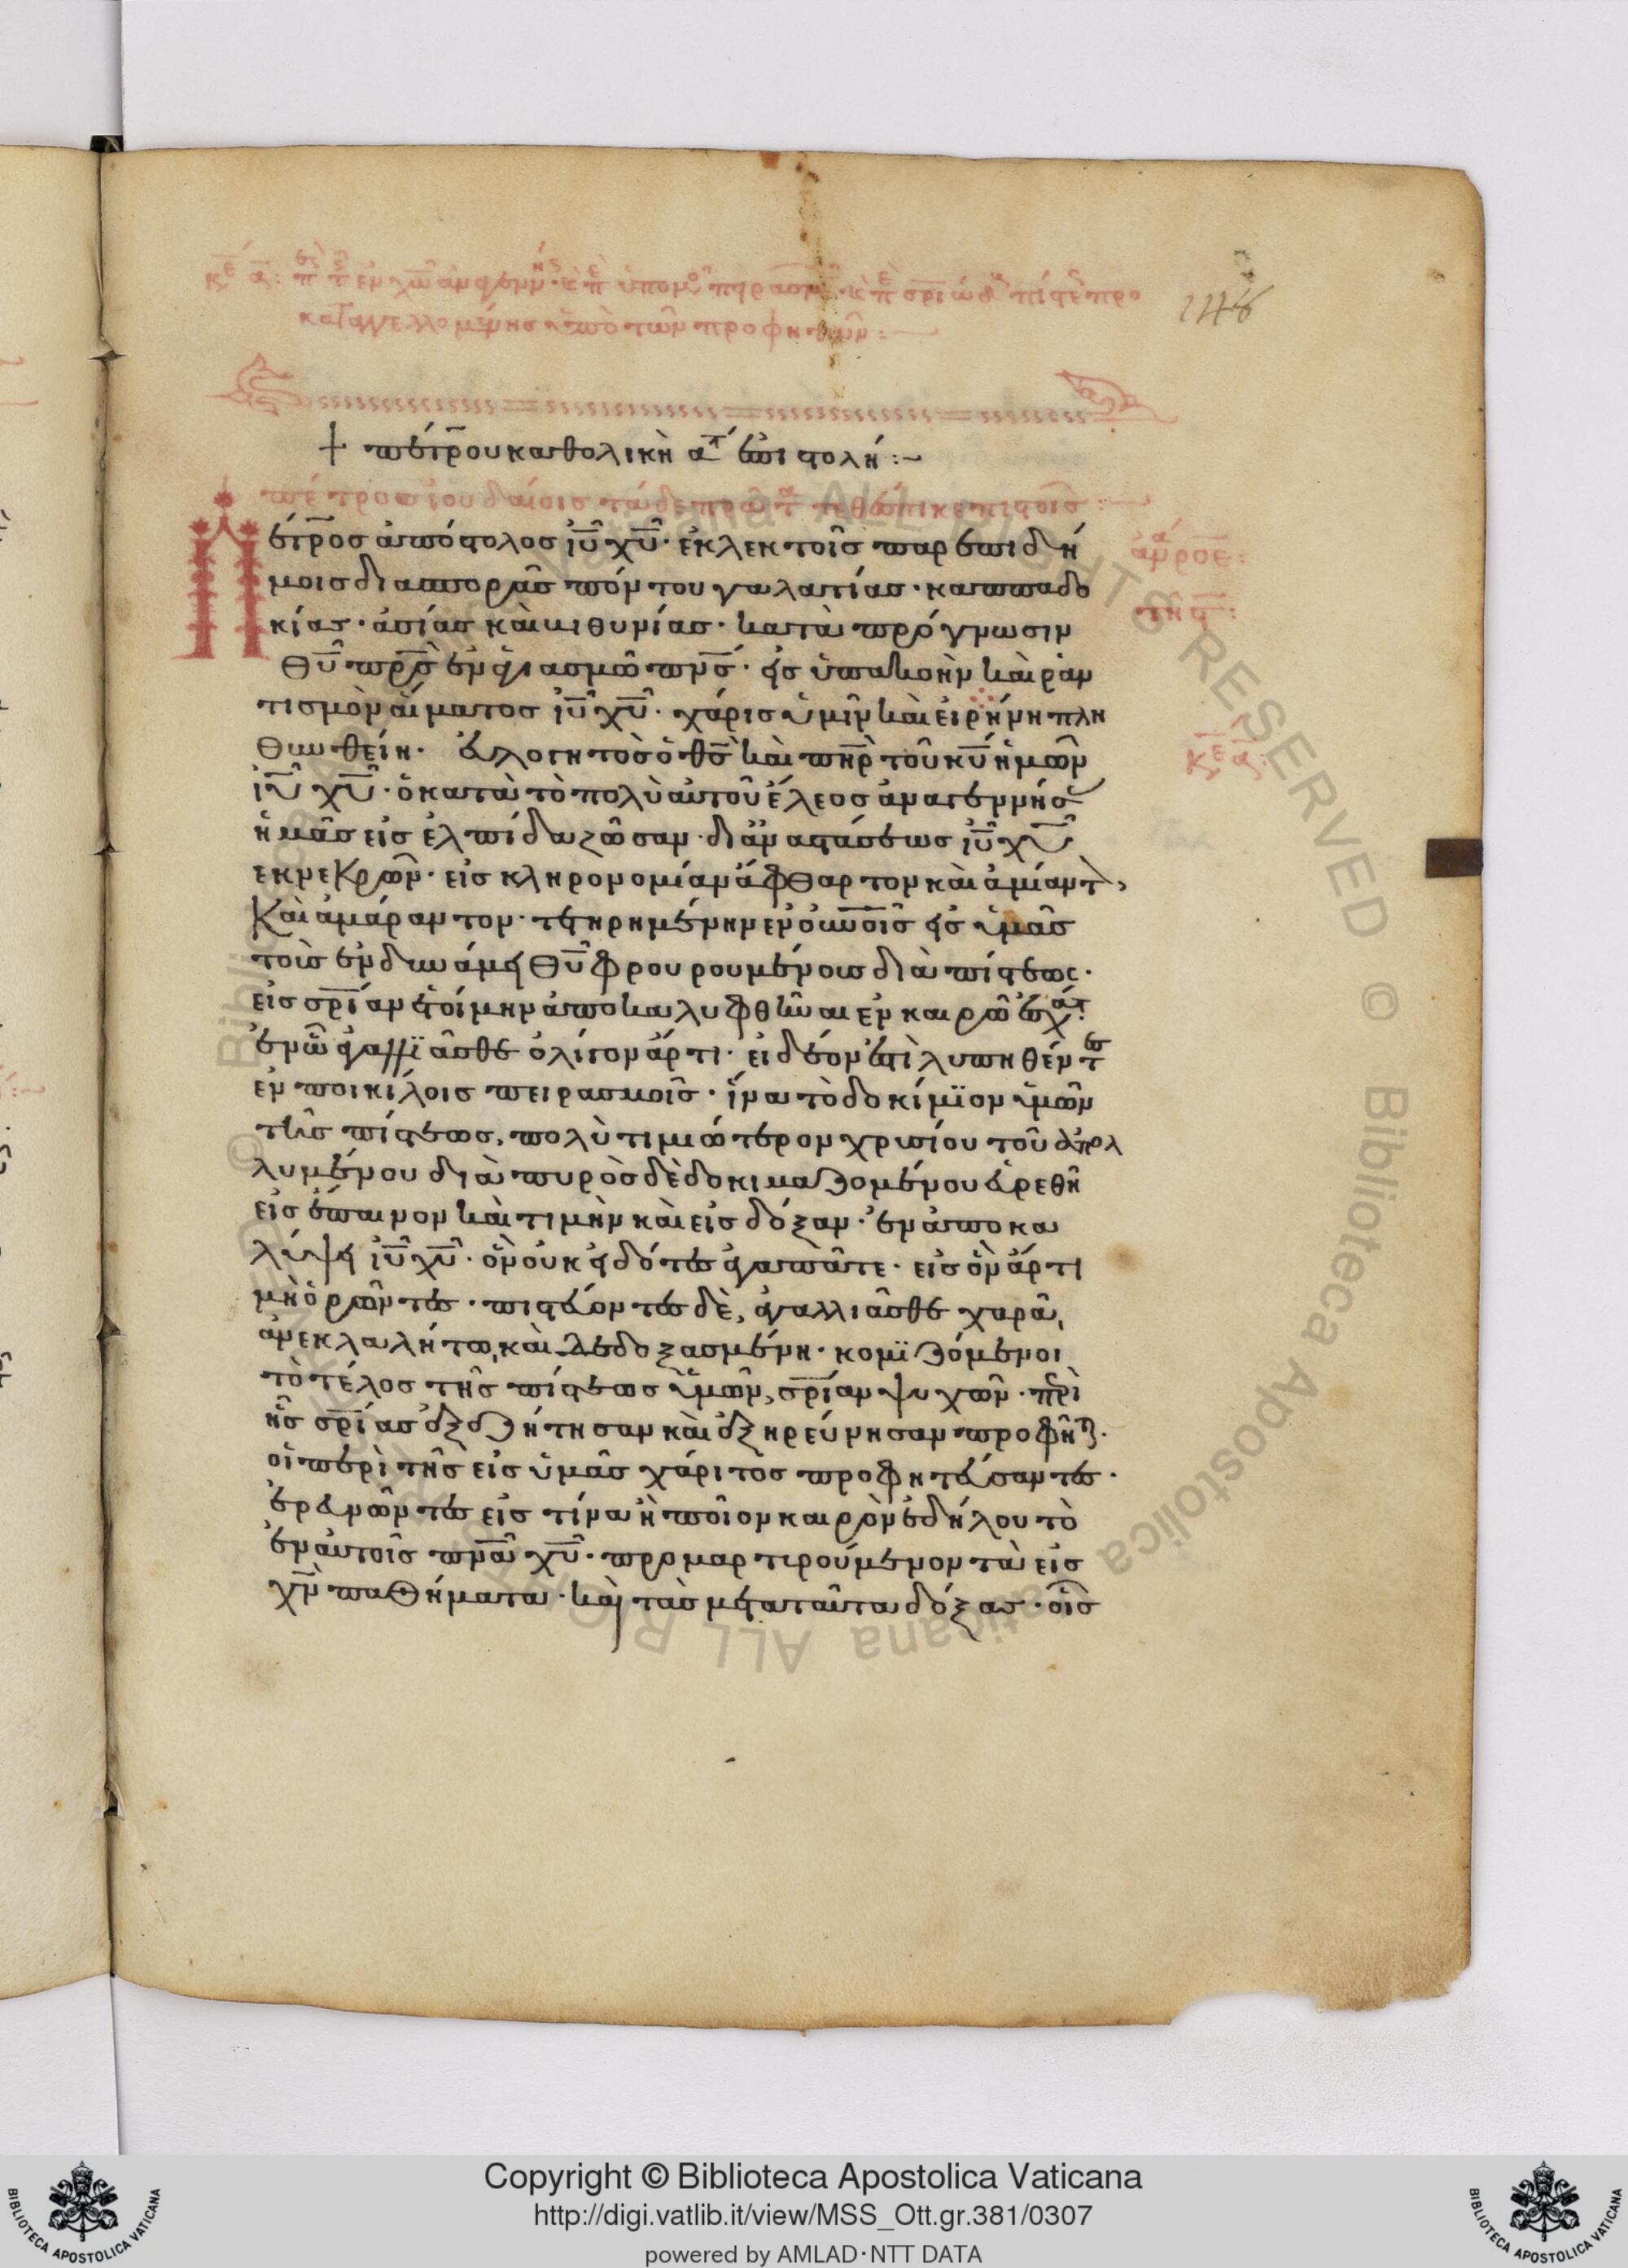 κε α: περὶ τῆς ἐν χω ἀναγεννης· κ περὶ ὑπομο πειρασμ · κ περὶ σριωδ πίστε προ
καταγγελλομένης ὑπὸ τῶν προφητῶν :—
146
+ πέτρου καθολικὴ α ἐπιστολή :~
πέτρος ἰουδαίοις τάδε πρῶτ
Πέτρος ἀπόστολος ἰυ χυ· ἐκλεκτοῖς παρεπιδή
μοις διασπορᾶς πόντου γαλατίας · καππαδο
κίας · ἀσίας καὶ βιθυνίας · κατὰ πρόγνωσιν
θυ πρς ἐν ἁγιασμῶ πνς · εἰς ὑπακοὴν καὶ ῥαν
τισμὸν αἵματος ἰυ χυ · χάρις ὑμῖν καὶ εἰρήνη πλη
θυνθείη · εὐλογητὸς ὁ θς καὶ πηρ τοῦ κυ ἡμῶν
κε α
ἰυ χυ · ὁ κατὰ τὸ πολὺ αὐτοῦ ἔλεος ἀναγεννήσ
ἡμᾶς εἰς ἐλπίδα ζῶσαν · δι ἀναστάσεως ἰυ χυ
ἐκ νεκρῶν · εἰς κληρονομίαν ἄφθαρτον καὶ ἀμίαντ,
καὶ ἀμάραντον · τετηρημένην ἐν οὐνοῖς εἰς ὑμᾶς
τοὺς ἐν δυνάμει θυ φρουρουμένους διὰ πίστεως ·
εἰς σρίαν ἑτοίμην ἀποκαλυφθῆναι ἐν καιρῶ ἐσχάτ
ἐν ὧ ἀγαλλϊᾶσθε ὀλίγον ἄρτι · εἰ δέον ἐστὶ λυπηθέντες
ἐν ποικίλοις πειρασμοῖς · ἵνα τὸ δοκίμϊον ὑμῶν
τῆς πίστεως, πολὺ τιμιώτερον χρυσίου τοῦ ἀπολ
λυμένου διὰ πυρὸς δὲ δοκιμαζομένου εὑρεθῆ
εἰς ἔπαινον καὶ τιμὴν καὶ εἰς δόξαν · ἐν ἀποκα
λύψει ἰυ χυ · ὃν οὐκ εἰδότες ἀγαπᾶτε · εἰς ὃν ἄρτι
μὴ ὁρῶντες · πιστεύοντες δὲ, ἀγαλλιᾶσθε χαρᾶ,
ἀνεκλαλήτω, καὶ δεδοξασμένη · κομϊζόμενοι
τὸ τέλος τῆς πίστεως ὑμῶν, σρίαν ψυχῶν · περὶ
ἧς σρίας ἐξεζήτησαν καὶ ἐξηρεύνησαν προφῆται ·
οἱ περὶ τῆς εἰς ὑμᾶς χάριτος προφητεύσαντες ·
ἐρευνῶντες εἰς τίνα ἢ ποῖον καιρὸν ἐδήλου τὸ
ἐν αὐτοῖς πνα χυ · προμαρτυρούμενον τὰ εἰς
χν παθήματα · καὶ τὰς μετὰ ταῦτα δόξας · οἷς
Copyright © Biblioteca Apostolica Vaticana
http://digi.vatlib.it/view/MSS_Ott.gr.381/0307
powered by AMLAD·NTT DATA
BIBLIOTECA APOSTOLICA VATICANA
BIBLIOTECA APOSTOLICA VATICANA